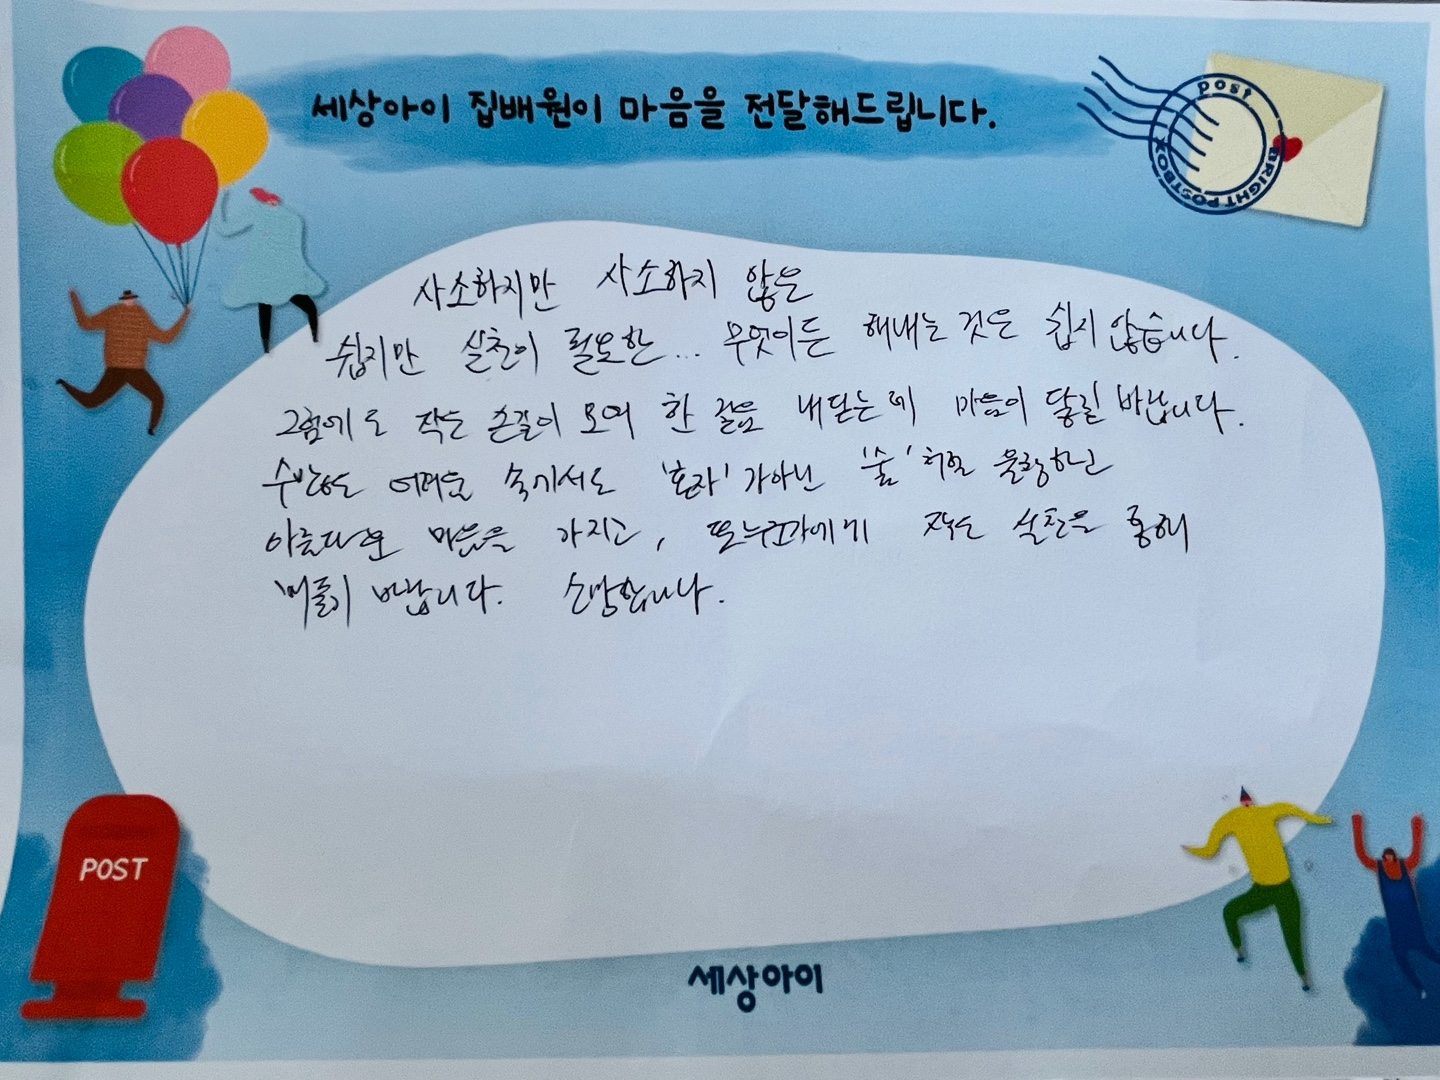 세상아이 집배원이 마음을 전달해드립니다.
post
BRIGHT POSTBOX
사소하지만 사소하지 않은
쉽지만 실천이 필요한... 무엇이든 해내는 것은 쉽지 않습니다.
그럼에도 작은 손길이 모여 한 걸음 내딛는데 마음이 닿길 바랍니다.
어려움 속에서도 '혼자'가아닌 '숲'처럼 울창하고
아름다운 마음을 가지고, 또누군가에게 작은 실천을 통해
바랍니다. 소망합니다.
POST
세상아이